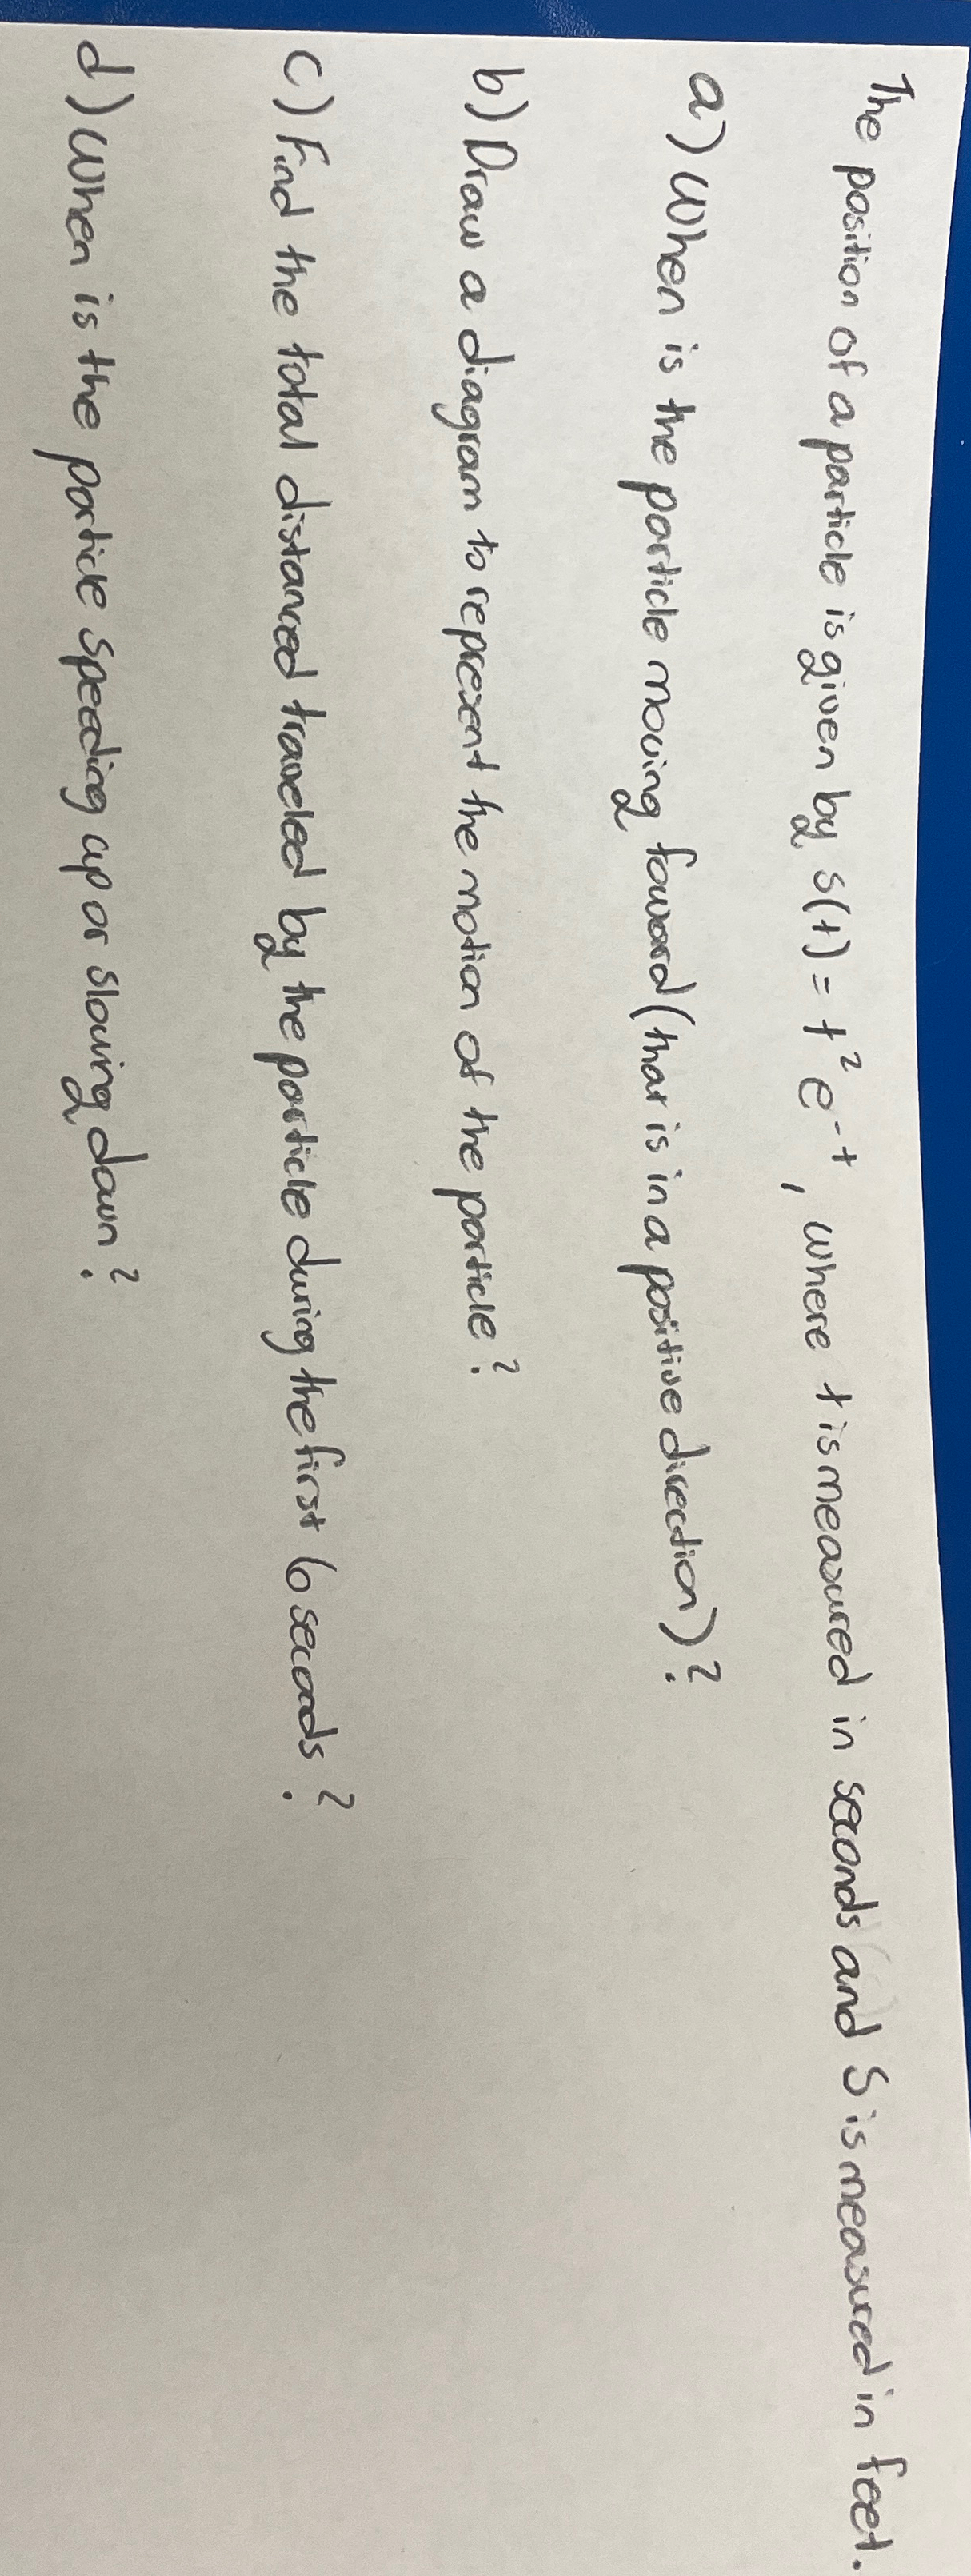 The position of a particle is given by s(t) = t² e⁻ᵗ, where t is measured in seconds and S is measured in feet.
a) When is the particle moving foward (that is in a positive direction)?
b) Draw a diagram to represent the motion of the particle?
c) Find the total distanced traveled by the particle during the first 6 seconds?
d) When is the particle speeding up or slowing down?